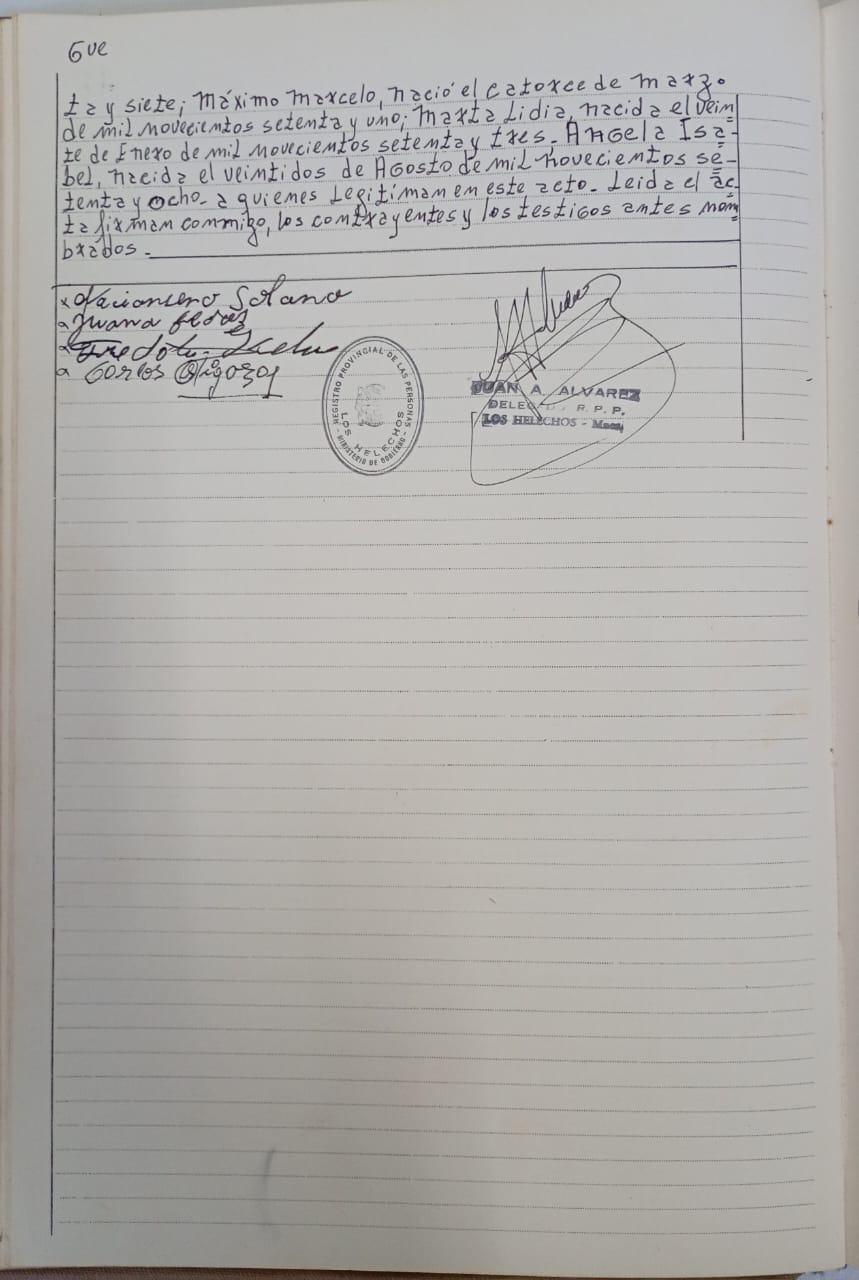 6ve
ta y siete; Máximo Marcelo, nació el catorce de marzo
de mil novecientos setenta y uno; Marta Lidia, nacida el vein
te de Enero de mil novecientos setenta y tres. Angela Isa-
bel, nacida el veintidos de Agosto de mil novecientos se-
tenta y ocho- a quienes Legitíman en este acto. Leida el ac
ta firman conmigo, los contrayentes y los testigos antes nom
brados.
Solano
Juana
Carlos
REGISTRO PROVINCIAL DE LAS PERSONAS
LOS HELECHOS
MINISTERIO DE GOBIERNO
JUAN A. ALVAREZ
R. P. P.
LOS HELECHOS - Mnes.